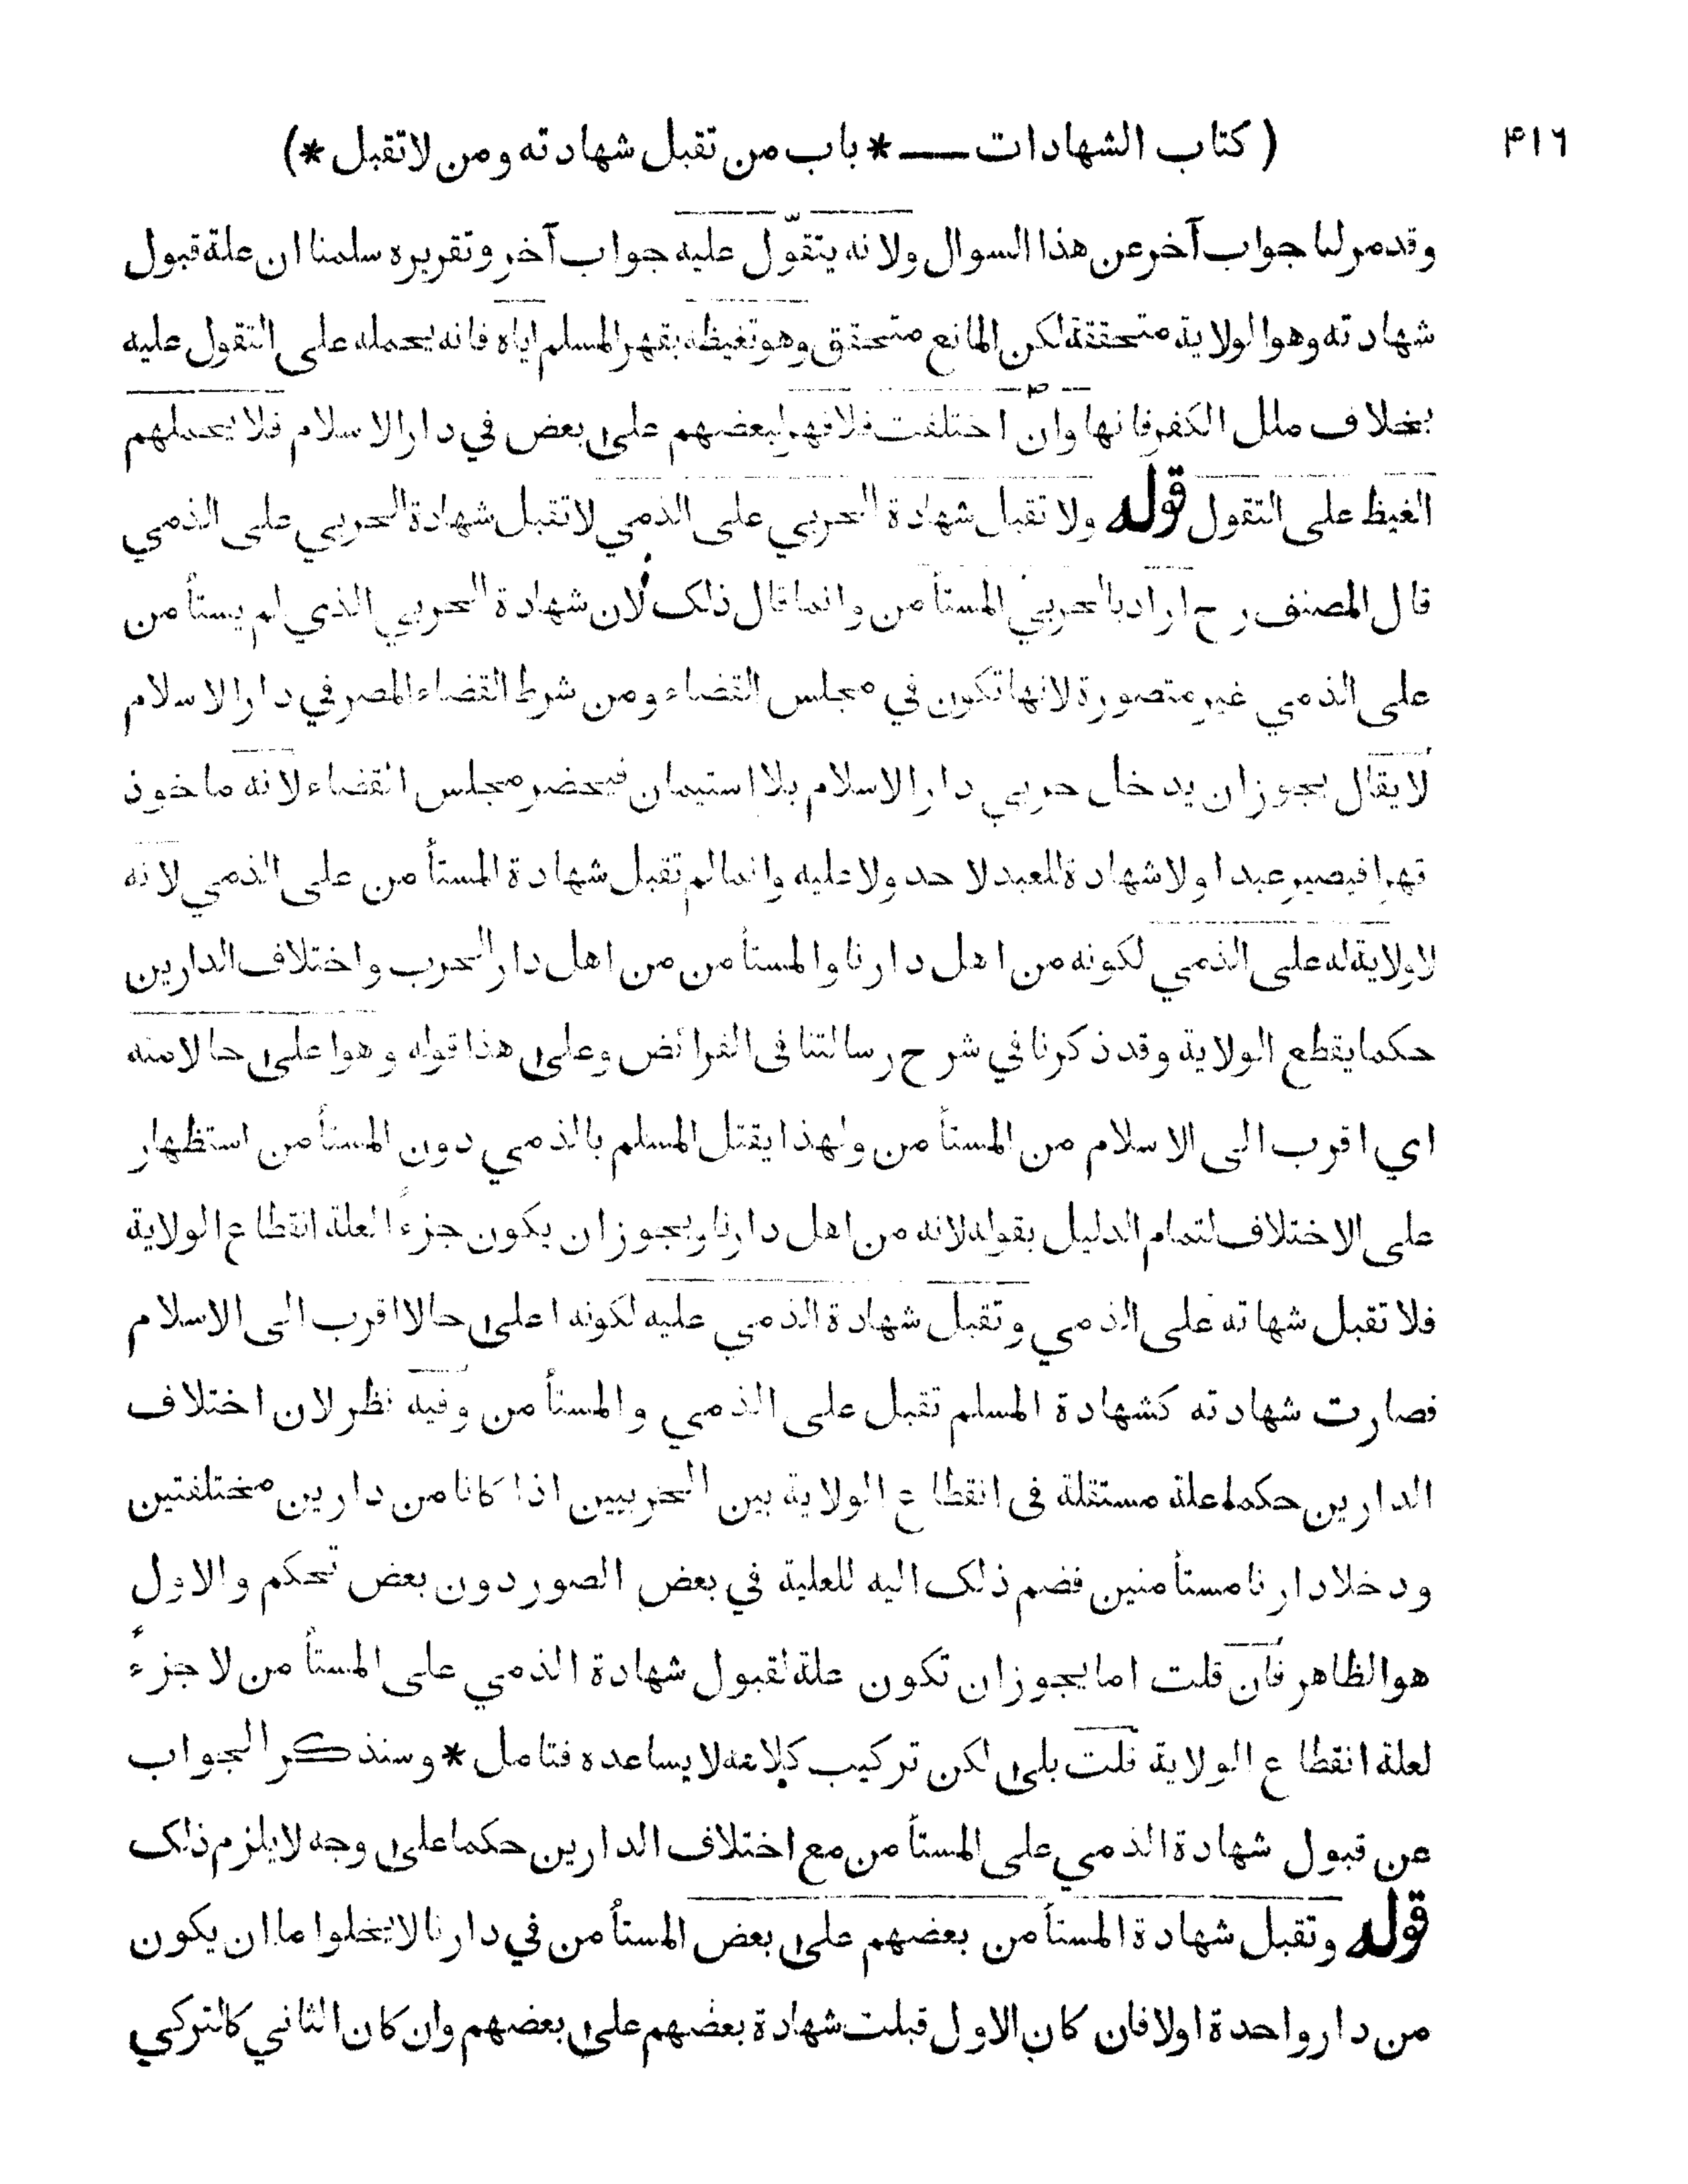 ٤١٦ ( كتاب الشهادات — * باب من تقبل شهادته ومن لا تقبل *)
وقد مر لنا جواب آخر عن هذا السوال ولانه يتقوّل عليه جواب آخر وتقريره سلمنا ان علة قبول
شهادته وهو الولاية متحققة لكن المانع متحقق وهو تغيظه بقهر المسلم اياه فانه يحمله على التقول عليه
بخلاف ملل الكفر فانها وان اختلفت فلا قهر لبعضهم على بعض في دار الاسلام فلا يحملهم
الغيظ على التقول قوله ولا تقبل شهادة الحربي على الذمي لا تقبل شهادة الحربي على الذمي
قال المصنف رح اراد بالحربي المستأمن وانما قال ذلك لان شهادة الحربي الذي لم يستأمن
على الذمي غير متصورة لانها تكون في مجلس القضاء ومن شرط القضاء المصر في دار الاسلام
لا يقال يجوز ان يدخل حربي دار الاسلام بلا استيمان فيحضر مجلس القضاء لانه ماخوذ
قهرا فيصير عبدا ولا شهادة للعبد لاحد ولا عليه وانما لم تقبل شهادة المستأمن على الذمي لانه
لا ولاية له على الذمي لكونه من اهل دارنا والمستأمن من اهل دار الحرب واختلاف الدارين
حكما يقطع الولاية وقد ذكرنا في شرح رسالتنا فى الفرائض وعلى هذا قوله وهو اعلى حالا منه
اي اقرب الى الاسلام من المستأمن ولهذا يقتل المسلم بالذمي دون المستأمن استظهار
على الاختلاف لتمام الدليل بقوله لانه من اهل دارنا ويجوز ان يكون جزءًا لعلة انقطاع الولاية
فلا تقبل شهاته على الذمي وتقبل شهادة الذمي عليه لكونه اعلى حالا اقرب الى الاسلام
فصارت شهادته كشهادة المسلم تقبل على الذمي والمستأمن وفيه نظر لان اختلاف
الدارين حكما علة مستقلة فى انقطاع الولاية بين الحربيين اذا كانا من دارين مختلفتين
ودخلا دارنا مستأمنين فضم ذلك اليه للعلية في بعض الصور دون بعض تحكم والاول
هو الظاهر فان قلت اما يجوز ان تكون علة لقبول شهادة الذمي على المستأمن لا جزءً
لعلة انقطاع الولاية قلت بلى لكن تركيب كلامه لا يساعده فتامل * وسنذكر الجواب
عن قبول شهادة الذمي على المستأمن مع اختلاف الدارين حكما على وجه لا يلزم ذلك
قوله وتقبل شهادة المستأمن بعضهم على بعض المستأمن في دارنا لا يخلوا ما ان يكون
من دار واحدة اولا فان كان الاول قبلت شهادة بعضهم على بعضهم وان كان الثاني كالتركي